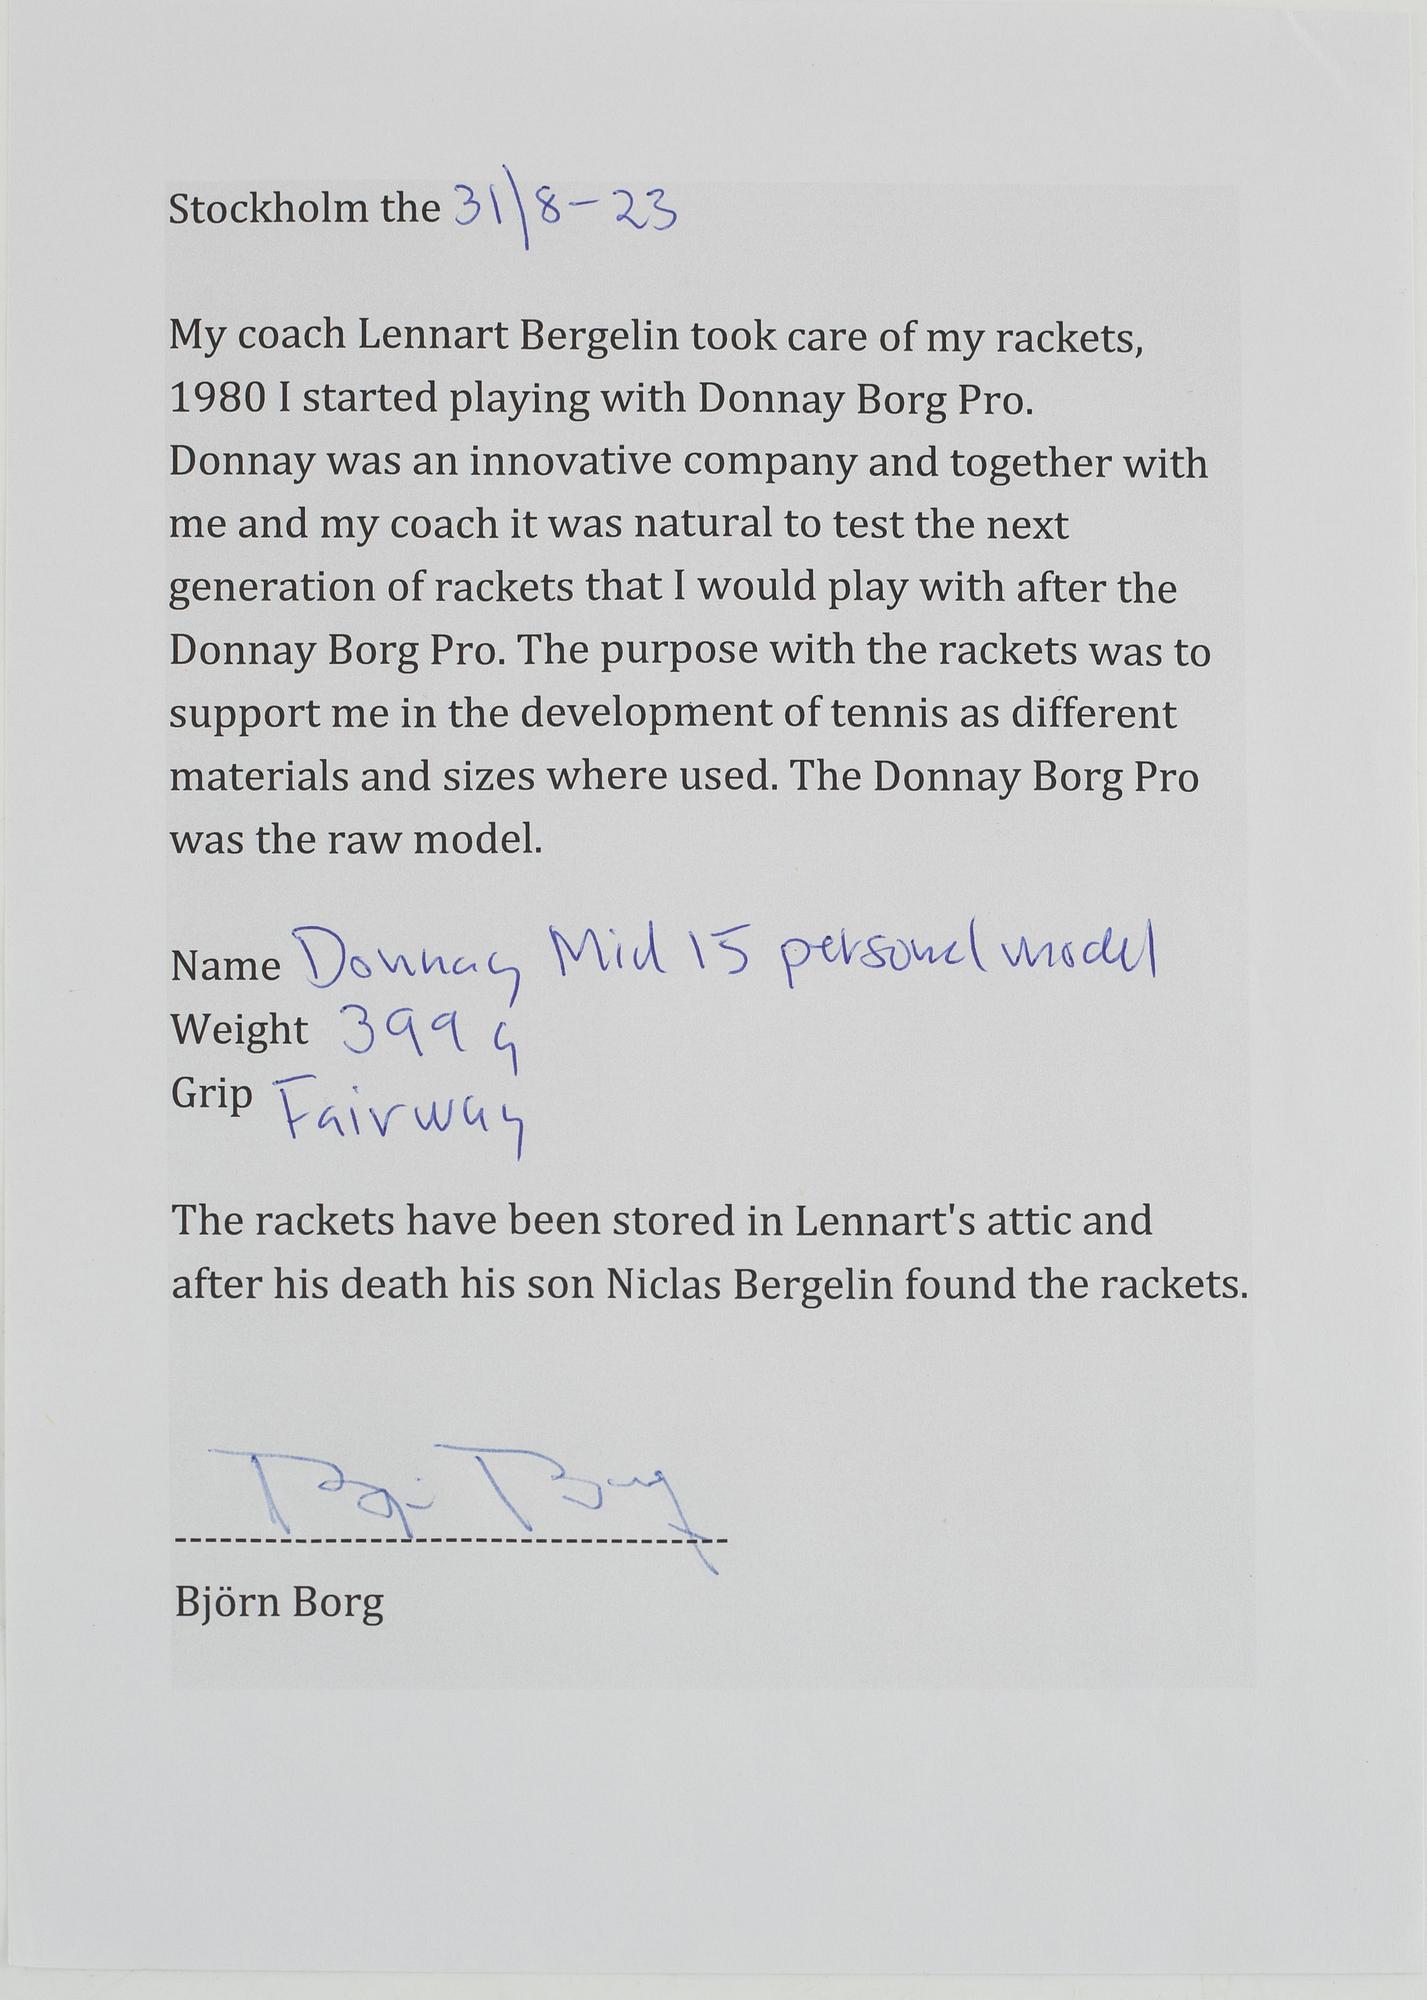 Stockholm the 31/8-23
My coach Lennart Bergelin took care of my rackets,
1980 I started playing with Donnay Borg Pro.
Donnay was an innovative company and together with
me and my coach it was natural to test the next
generation of rackets that I would play with after the
Donnay Borg Pro. The purpose with the rackets was to
support me in the development of tennis as different
materials and sizes where used. The Donnay Borg Pro
was the raw model.
Name Donnay Mid 15 personel model
Weight 399 g
Grip Fairway
The rackets have been stored in Lennart's attic and
after his death his son Niclas Bergelin found the rackets.
Björn Borg
Björn Borg